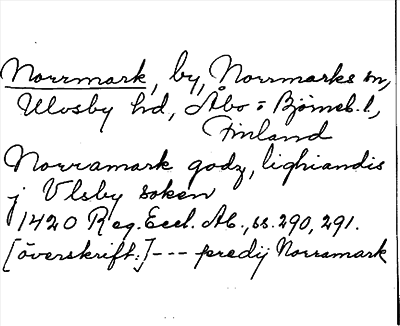 Norrmark, by, Norrmarks sn,
Ulvsby hd, Åbo = Björneb. l.,
Finland
Norramark godz, lighiandis
j Vlsby soken
1420 Reg. Eccl. Ab., ss. 290, 291.
[överskrift:] --- predij Norramark